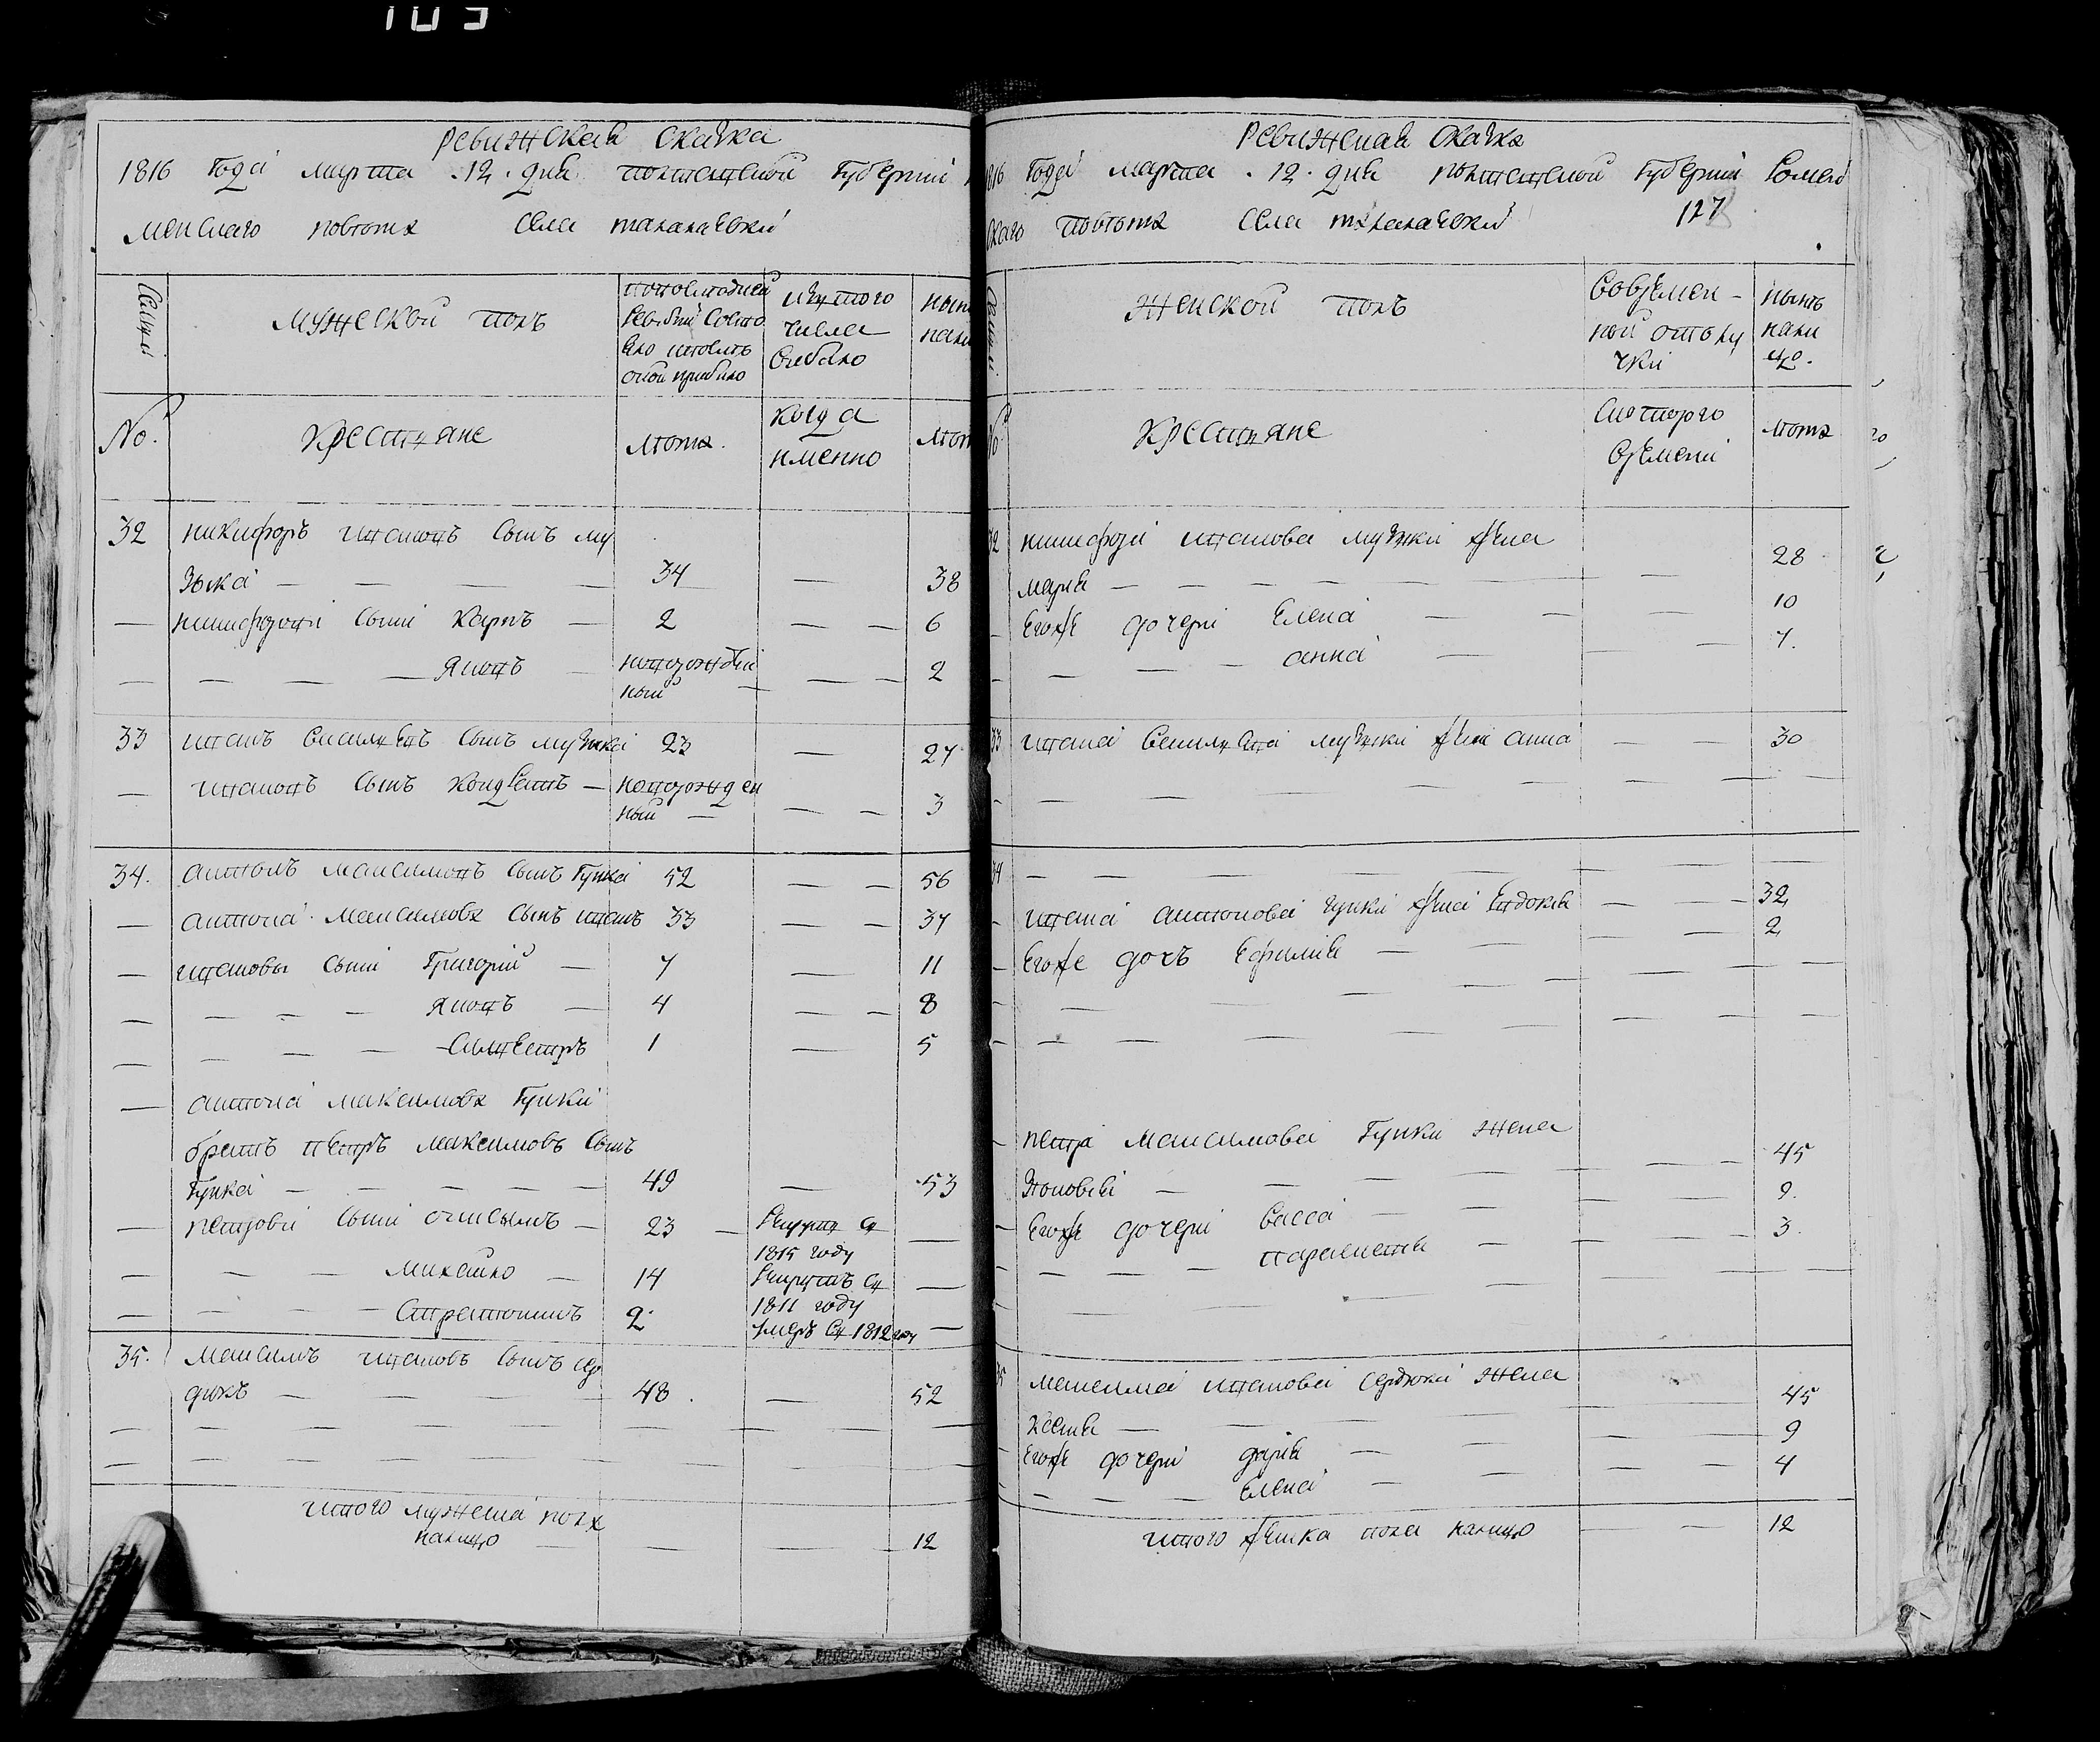 103
Ревижская скаска
1816 года марта 12 дня полтавской губернии Ро
менскаго повѣта села талалаевки
Семьи
мужеской полъ
попоследней ревизии состо
яло и послѣ
оной прибыло
изтого числа выбыло
нынѣ нали
No.
крестьяне
лѣта
когда именно
лѣт
32 никифоръ ивановъ сынъ му
зыка — 34 — 38
— никифоровы сыны карпъ — 2 — — 6
— — — — яковъ — новорожден
ный — — — 2
33 иванъ васильевъ сынъ музыка 23 — 27
— ивановъ сынъ кондратъ — новорожден
ный — — — 3
34. антонъ максимовъ сынъ гупка 52 — — 56
— антона максимова сынъ иванъ 33 — — 37
— ивановы сыны григорий — 7 — 11
— — — — яковъ — 4 — — 8
— — — — силвестръ 1 — 5
— антона максимова гупки
братъ петръ максимовъ сынъ
гупка — — — — — 49 — 53
— петровы сыны 23 — рекрутъ в
1815 году —
— — — михайло — 14 рекрутъ в
1811 году —
— — — — 2 умеръ в 1812 году —
35. максимъ ивановъ сынъ сер
дюкъ — — — — 48. — 52
итого мужеска пола
налицо — — — 12
Ревижская скаска
1816 года марта 12 дня полтавской губернии Ромен
скаго повѣта села талалаевки
127
Семьи
женской полъ
вовремен-
ной отлу
чки
нынѣ
нали
цо.
No
крестьяне
скоторого
времени
лѣта
32 никифора иванова музыки жена
мария — — — — — — — 28
— егоже дочери елена — — — 10
— — — — анна — — — 7.
33 ивана васильева музыки жена анна — — 30
34 — — — — — — — —
— ивана антонова гупки жена евдокия — — — 32
— егоже дочъ ефимия — — — 2
— петра максимова гупки жена
зѣновия — — — — — 45
— егоже дочери васса — — — 9.
— — — — параскевия — — — 3.
35 максима иванова сердюка жена
ксения — — — — — 45
— егоже дочери дария — — — — 9
— — — — елена — — — — 4
итого женска пола налицо — — 12